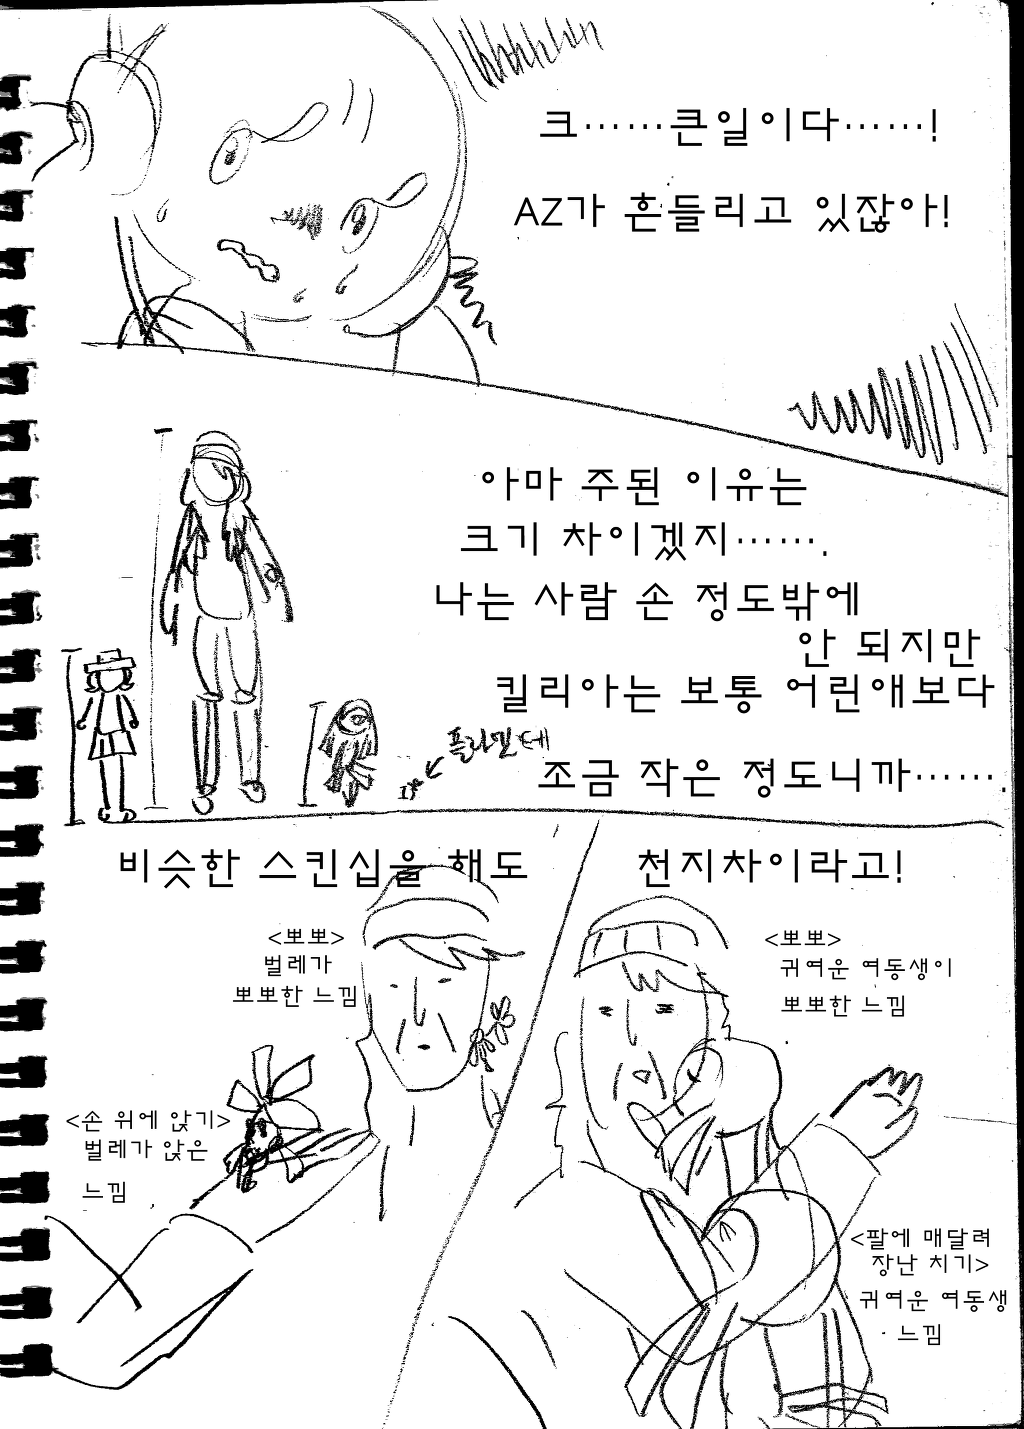 크……큰일이다……!
AZ가 흔들리고 있잖아!
아마 주된 이유는
크기 차이겠지…….
나는 사람 손 정도밖에
안 되지만
킬리아는 보통 어린애보다
조금 작은 정도니까…….
비슷한 스킨십을 해도
천지차이라고!
<뽀뽀>
벌레가
뽀뽀한 느낌
<손 위에 앉기>
벌레가 앉은
느낌
<뽀뽀>
귀여운 여동생이
뽀뽀한 느낌
<팔에 매달려
장난 치기>
귀여운 여동생
느낌